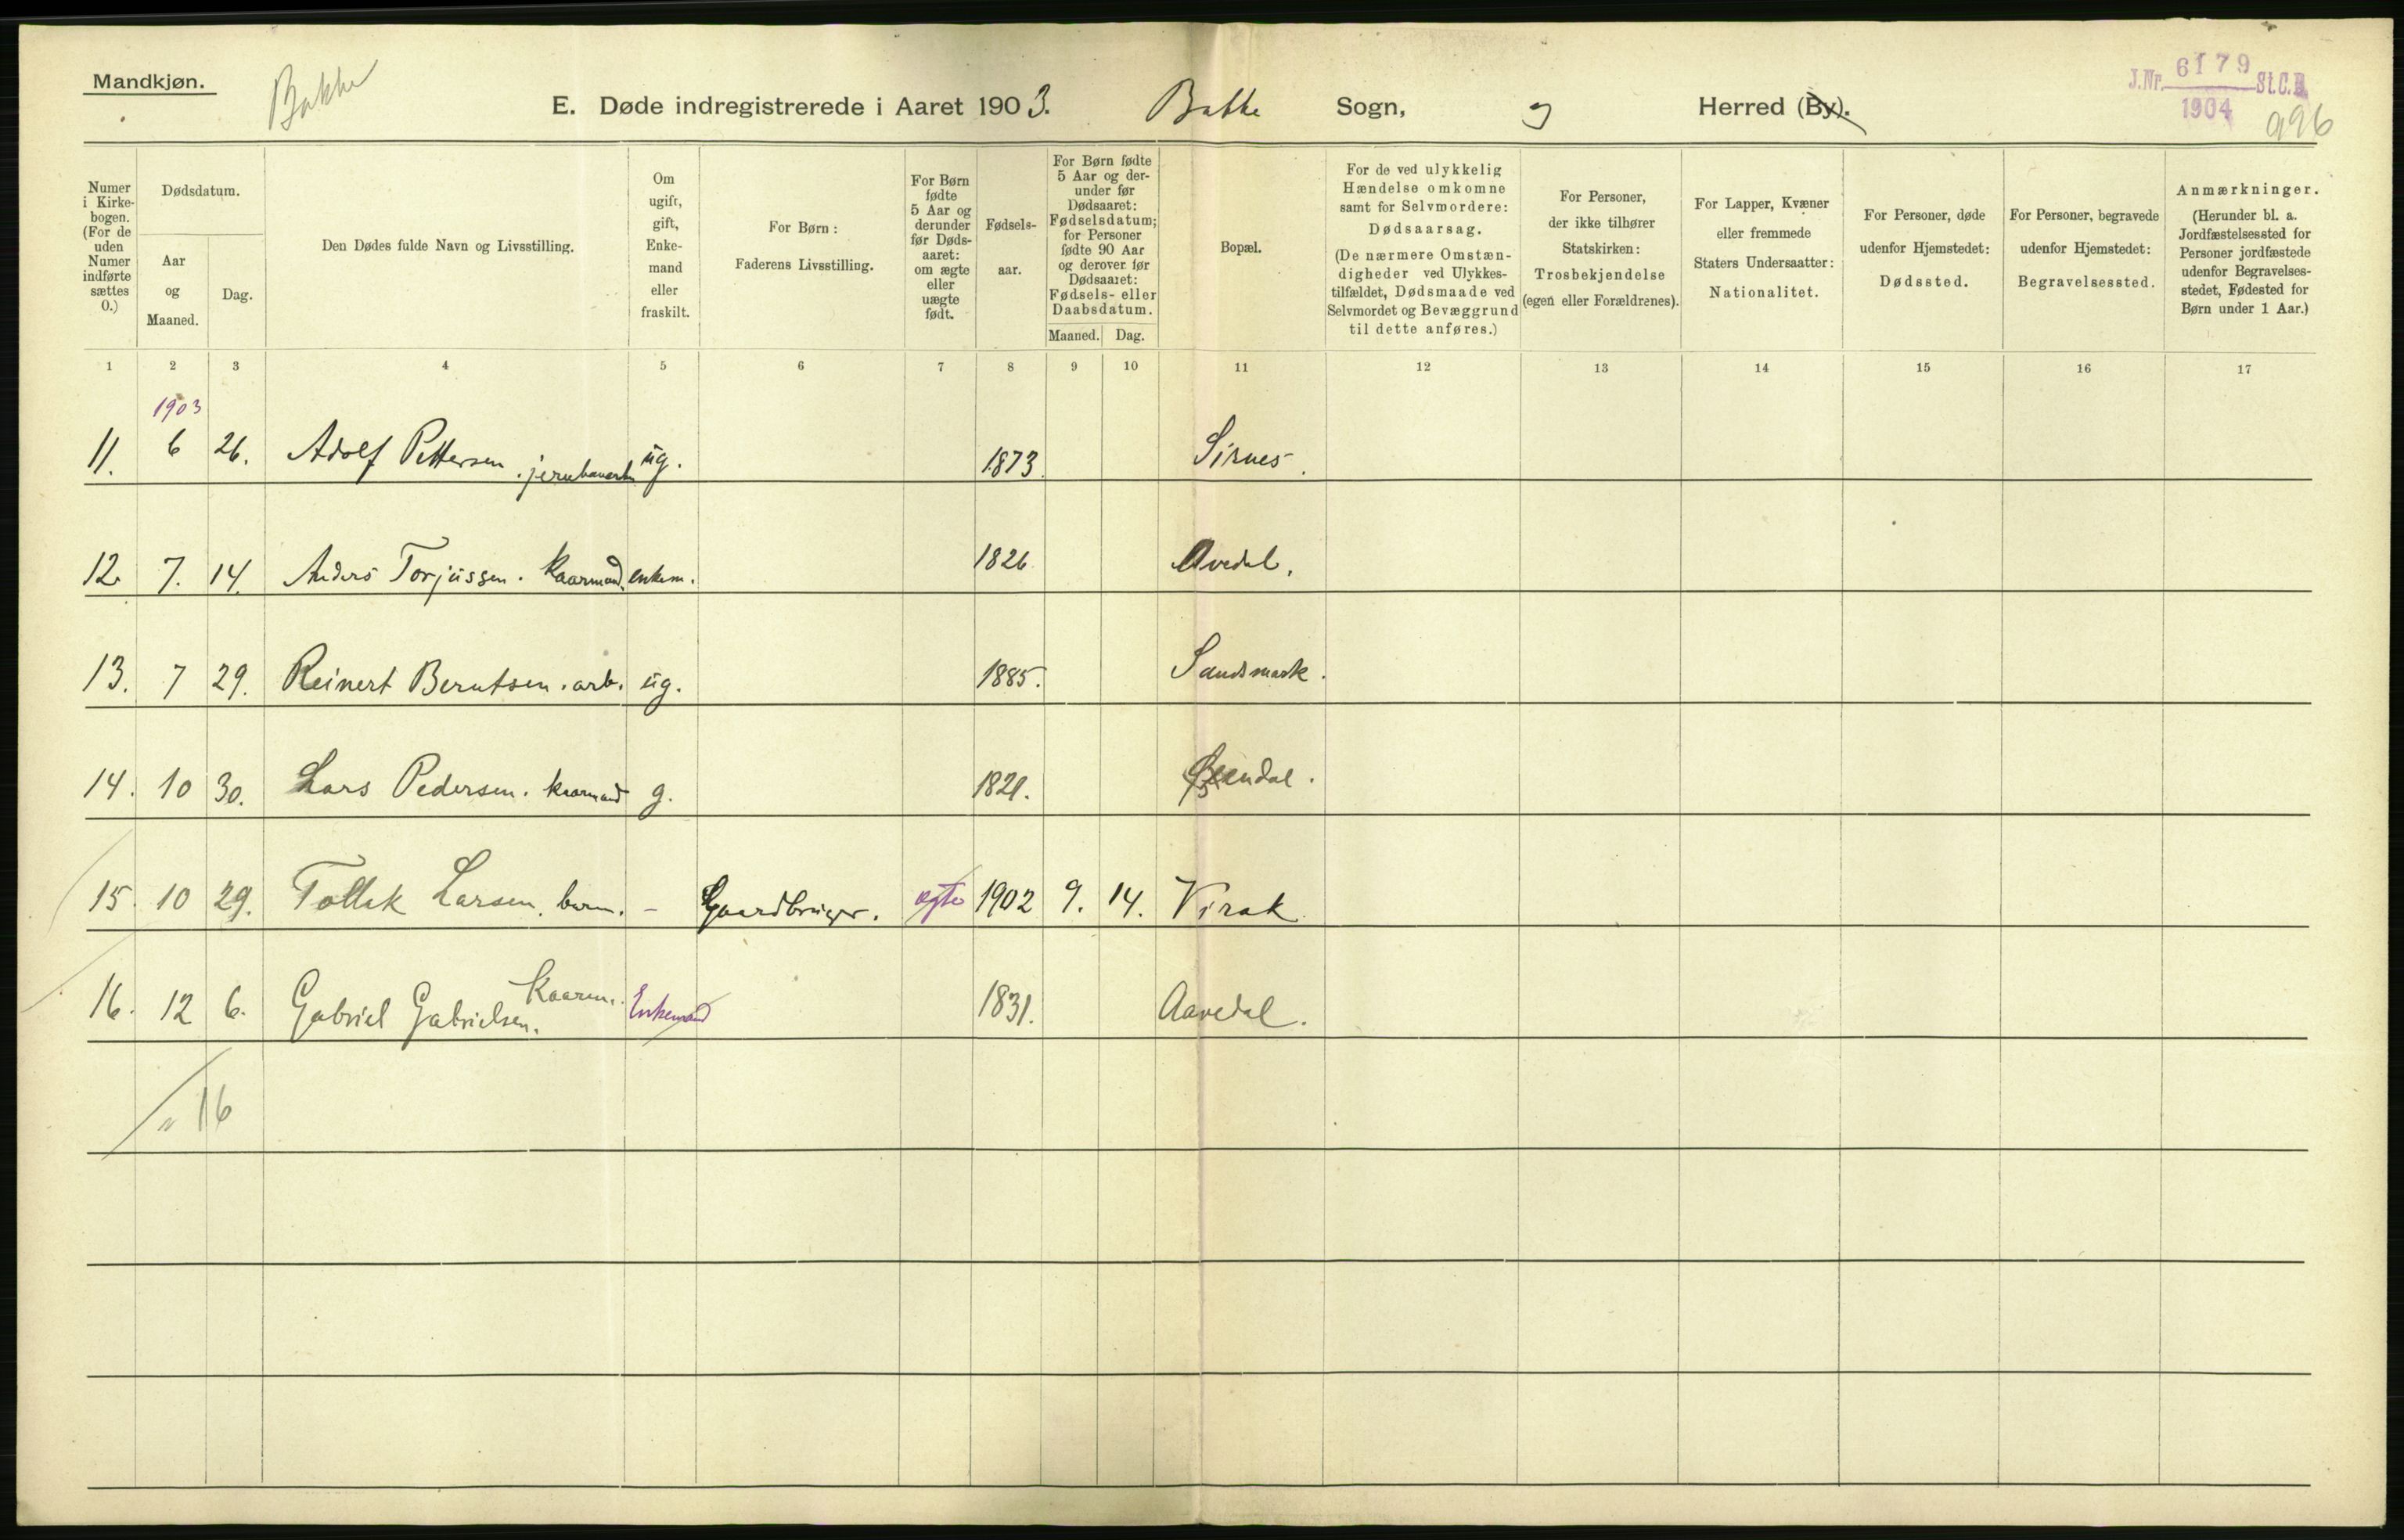 Mandkjøn.
Bakke
E. Døde indregistrerede i Aaret 1903. Bakke Sogn, Herred (By).
J.Nr. 6179 St.C.B.
1904
996
Numer i Kirke- bogen. (For de uden Numer indførte sættes 0.)
Dødsdatum.
Aar og Maaned.
Dag.
Den Dødes fulde Navn og Livsstilling.
Om ugift, gift, Enke- mand eller fraskilt.
For Børn: Faderens Livsstilling.
For Børn fødte 5 Aar og derunder før Døds- aaret: om ægte eller uægte født.
Fødsels- aar.
For Børn fødte 5 Aar og der- under før Dødsaaret: Fødselsdatum; for Personer fødte 90 Aar og derover før Dødsaaret: Fødsels- eller Daabsdatum.
Maaned. Dag.
Bopæl.
For de ved ulykkelig Hændelse omkomne samt for Selvmordere: Dødsaarsag. (De nærmere Omstæn- digheder ved Ulykkes- tilfældet, Dødsmaade ved Selvmordet og Bevæggrund til dette anføres.)
For Personer, der ikke tilhører Statskirken: Trosbekjendelse (egen eller Forældrenes).
For Lapper, Kvæner eller fremmede Staters Undersaatter: Nationalitet.
For Personer, døde udenfor Hjemstedet: Dødssted.
For Personer, begravede udenfor Hjemstedet: Begravelsessted.
Anmærkninger. (Herunder bl. a. Jordfæstelsessted for Personer jordfæstede udenfor Begravelses- stedet, Fødested for Børn under 1 Aar.)
1 2 3 4 5 6 7 8 9 10 11 12 13 14 15 16 17
1903
11. 6 26. Adolf Pettersen. ug. 1873. Sirnes.
12. 7. 14. Anders Torjussen. Kaarmand. enkem. 1826 Avedal.
13. 7 29. Reinert Berntsen. arb. ug. 1885. Sandsmark.
14. 10 30. Lars Pedersen. kaarmand g. 1821.
15. 10 29. Tollak Larsen. barn. - Gaardbruger. ægte 1902 9. 14. Virak.
16. 12 6. Gabriel Gabrielsen. Kaarm. Enkemand 1831. Aavedal.
16